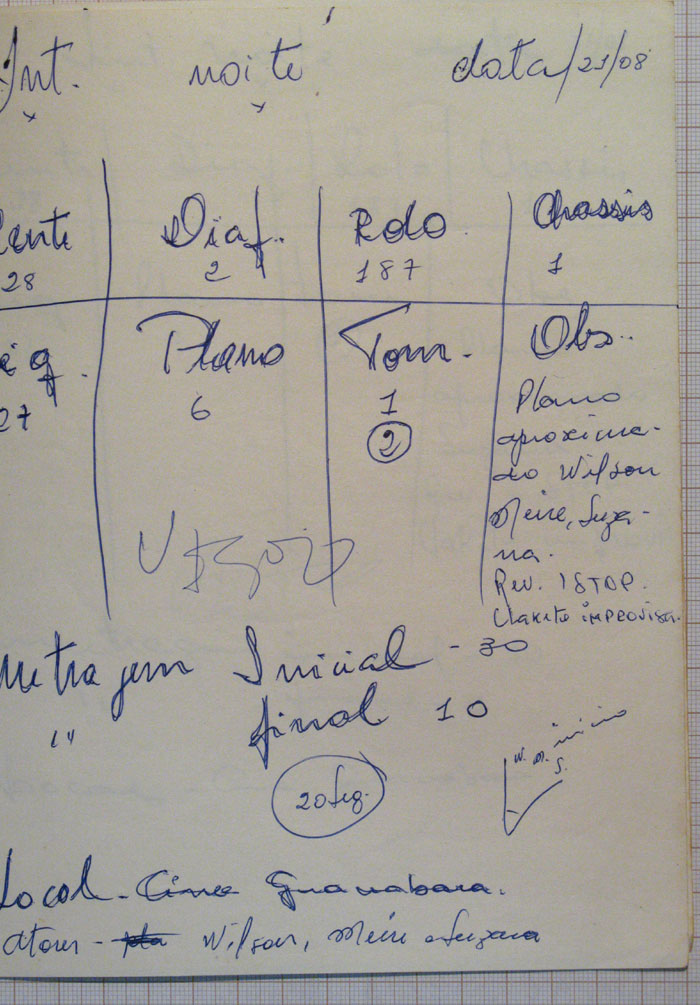 Int. noite data/21/08
Lente Diaf. Rolo Chassis
28 2 187 1
eq. Plano Tom. Obs..
27 6 1
2
Plano
aproxima-
do Wilson
Meire, Suza-
na.
Rev. 1 STOP.
Clakete
Metragem Inicial - 30
" final 10
20 seg.
W. M. início
S.
Local - Cine Guanabara.
Atores - Wilson, Meire e Suzana